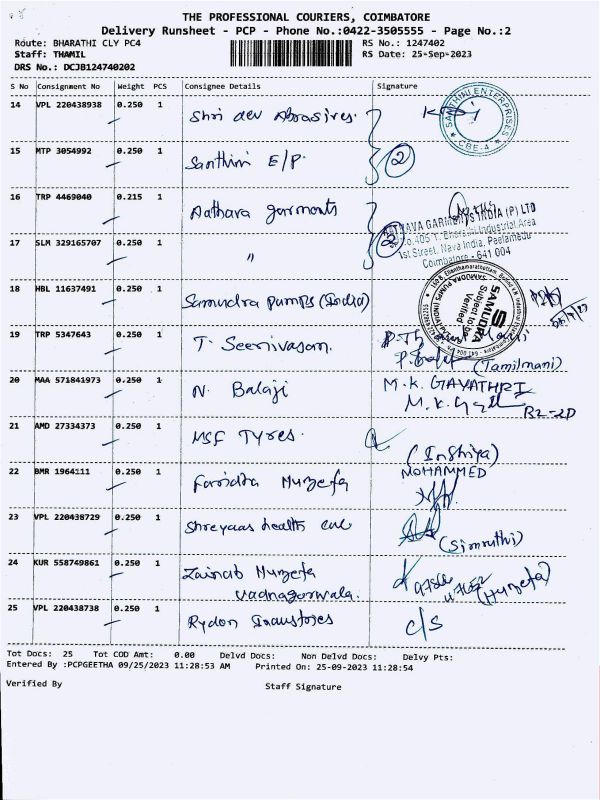 THE PROFESSIONAL COURIERS, COIMBATORE
Delivery Runsheet - PCP - Phone No.:0422-3505555 - Page No.:2
Route: BHARATHI CLY PC4 RS No.: 1247402
Staff: THAMIL RS Date: 25-Sep-2023
DRS No.: DCJB124740202
S No Consignment No Weight PCS Consignee Details Signature
14 VPL 220438938 0.250 1 Shri dev Abrasives.
SANTHINI ENTERPRISES
CBE-4
15 MTP 3054992 0.250 1 Santhini E/P. 2
16 TRP 4469040 0.215 1 Aathava garments
GARMENTS INDIA (P) LTD
Industrial Area
1st Street, Nava India, Peelamedu
Coimbatore - 641 004
17 SLM 329165707 0.250 1 " 2
18 HBL 11637491 0.250 1 Samudra Pumps (India)
SAMUDRA
Subject to be Verified
19 TRP 5347643 0.250 1 T. Seenivasan.
(Tamilmani)
20 MAA 571841973 0.250 1 N. Balaji M.K. GAYATHRI
B2-2D
21 AMD 27334373 0.250 1 MSF Tyres.
(Inshiya)
22 BMR 1964111 0.250 1 Faridha Huzefa MOHAMMED
23 VPL 220438729 0.250 1 Shreyaas health care
(Simruthi)
24 KUR 558749861 0.250 1 Zainab Huzefa
Vadnagarwala. (Huzefa)
25 VPL 220438738 0.250 1 Rydon Industries c/s
Tot Docs: 25 Tot COD Amt: 0.00 Delvd Docs: Non Delvd Docs: Delvy Pts:
Entered By :PCPGEETHA 09/25/2023 11:28:53 AM Printed On: 25-09-2023 11:28:54
Verified By Staff Signature